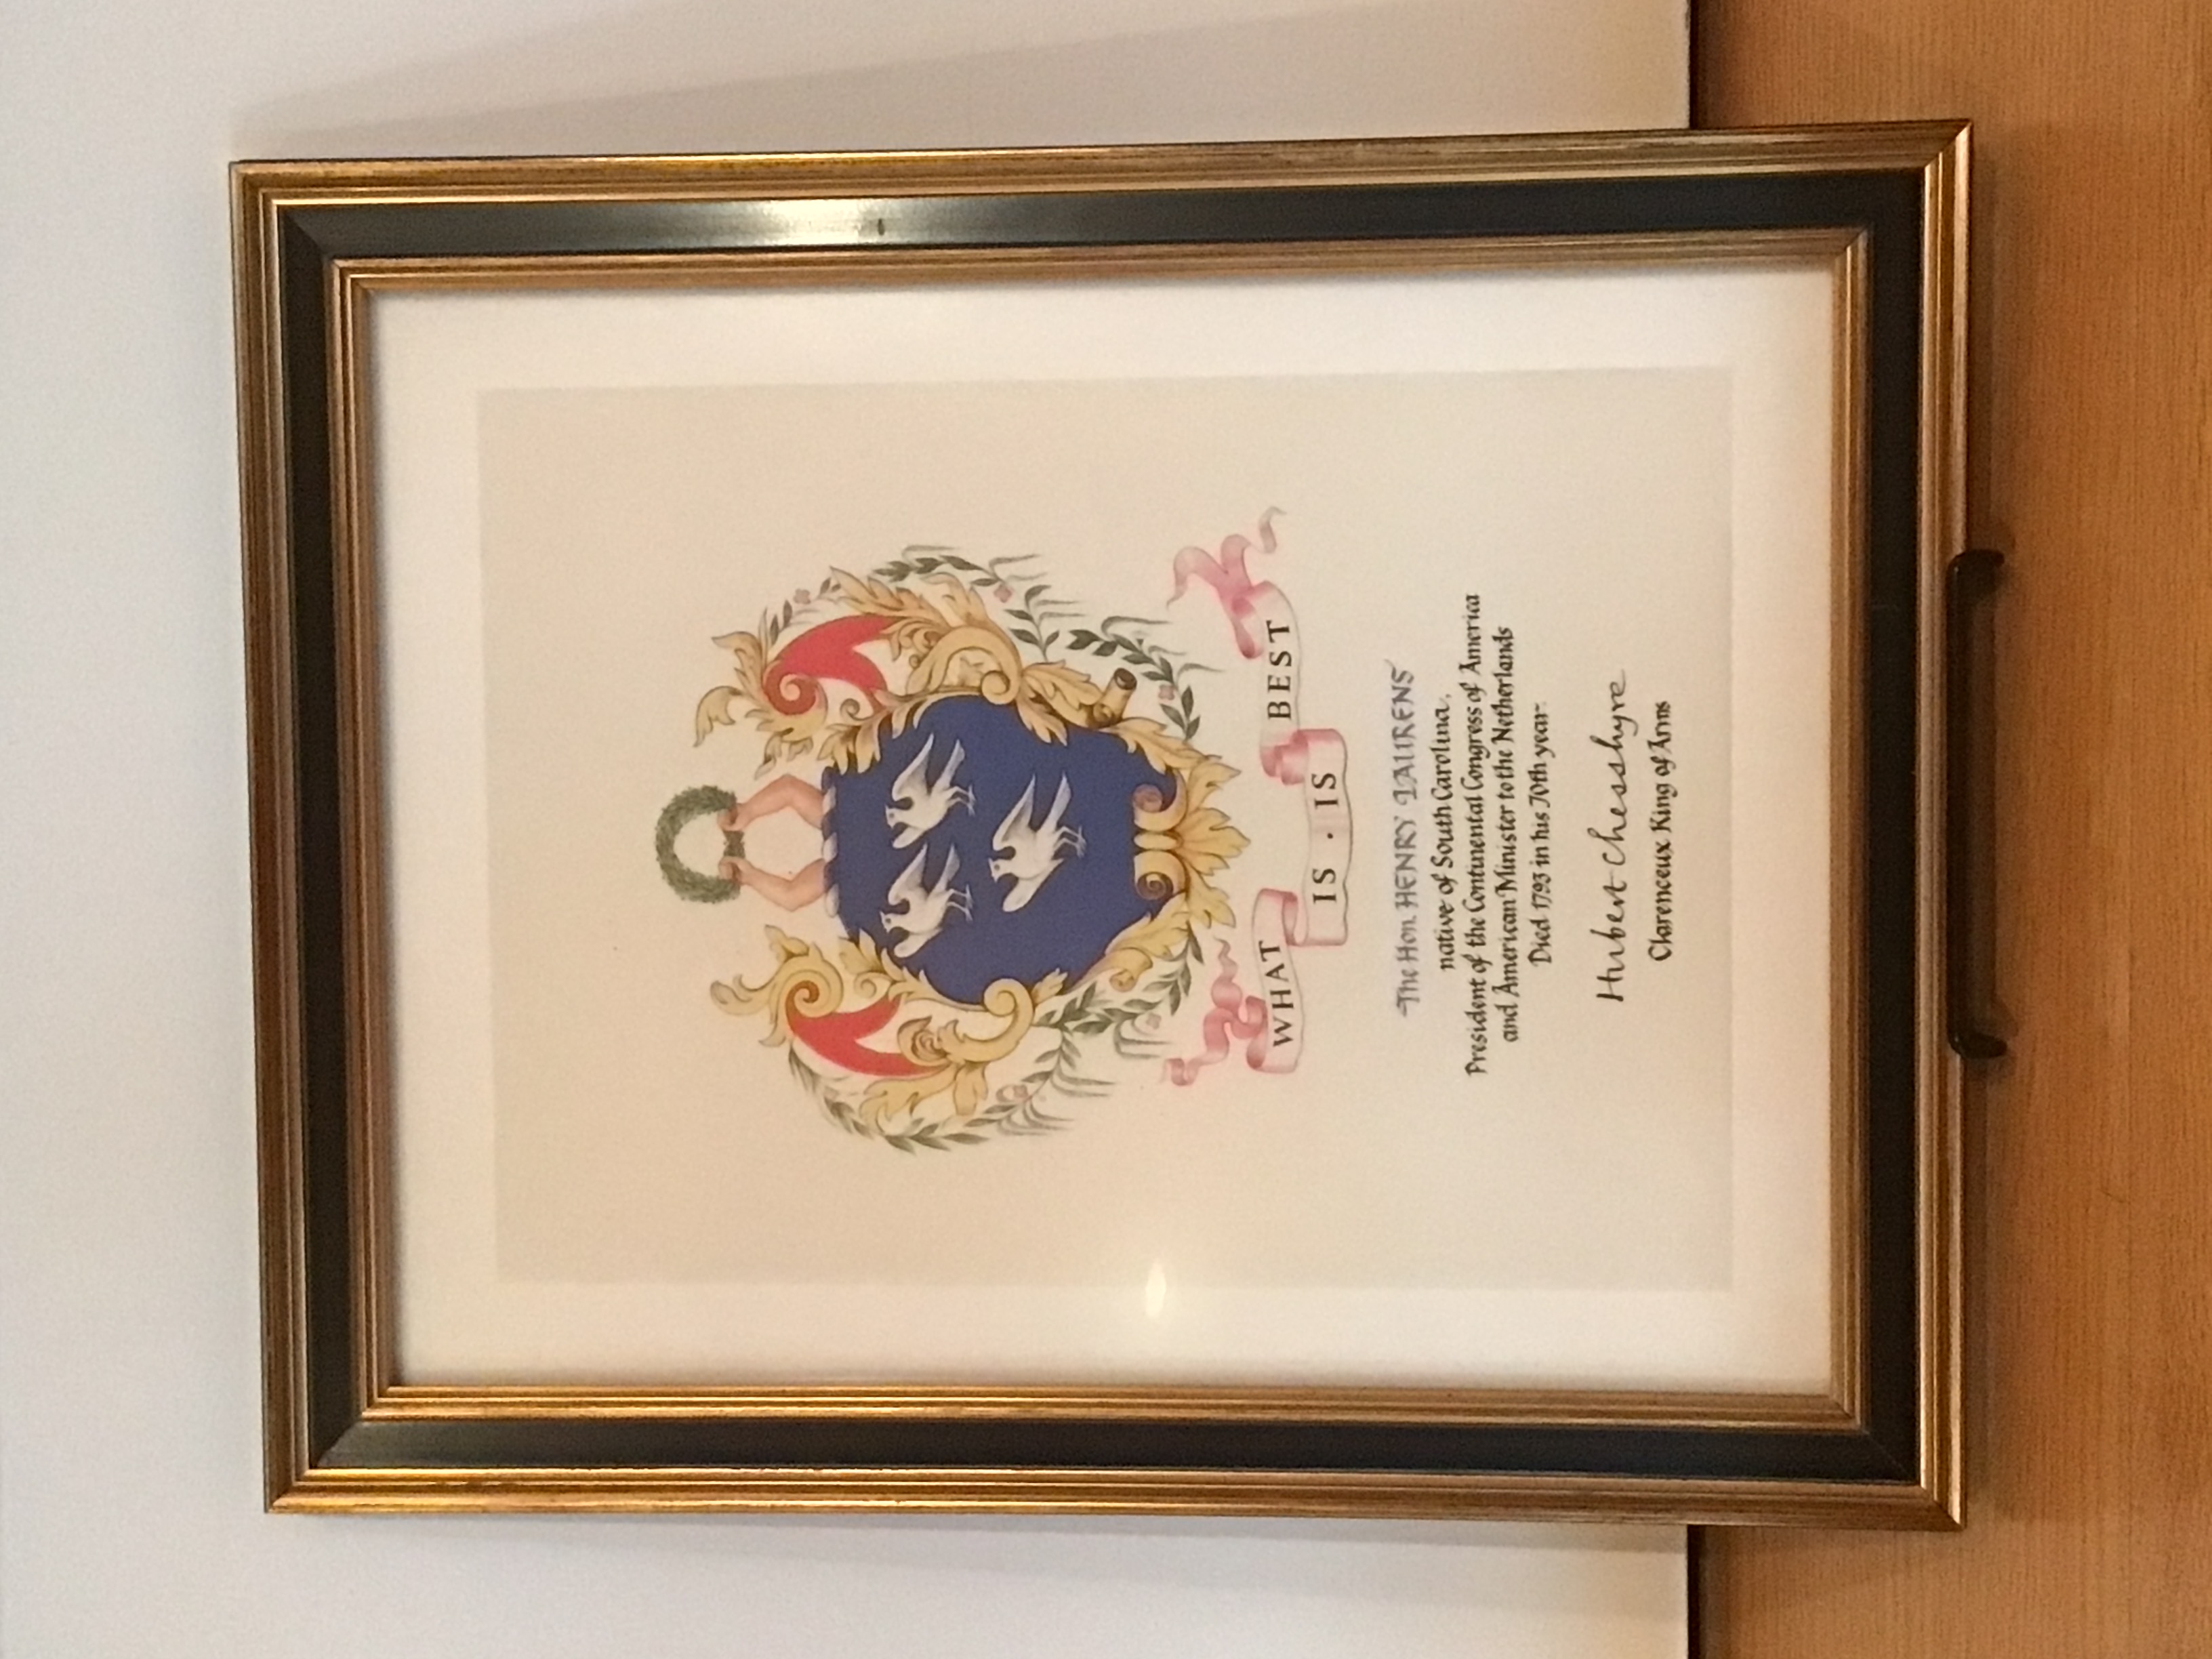 WHAT
IS · IS
BEST
The Hon. HENRY LAURENS
native of South Carolina,
President of the Continental Congress of America
and American Minister to the Netherlands
Died 1793 in his 70th year
Hubert Chesshyre
Clarenceux King of Arms